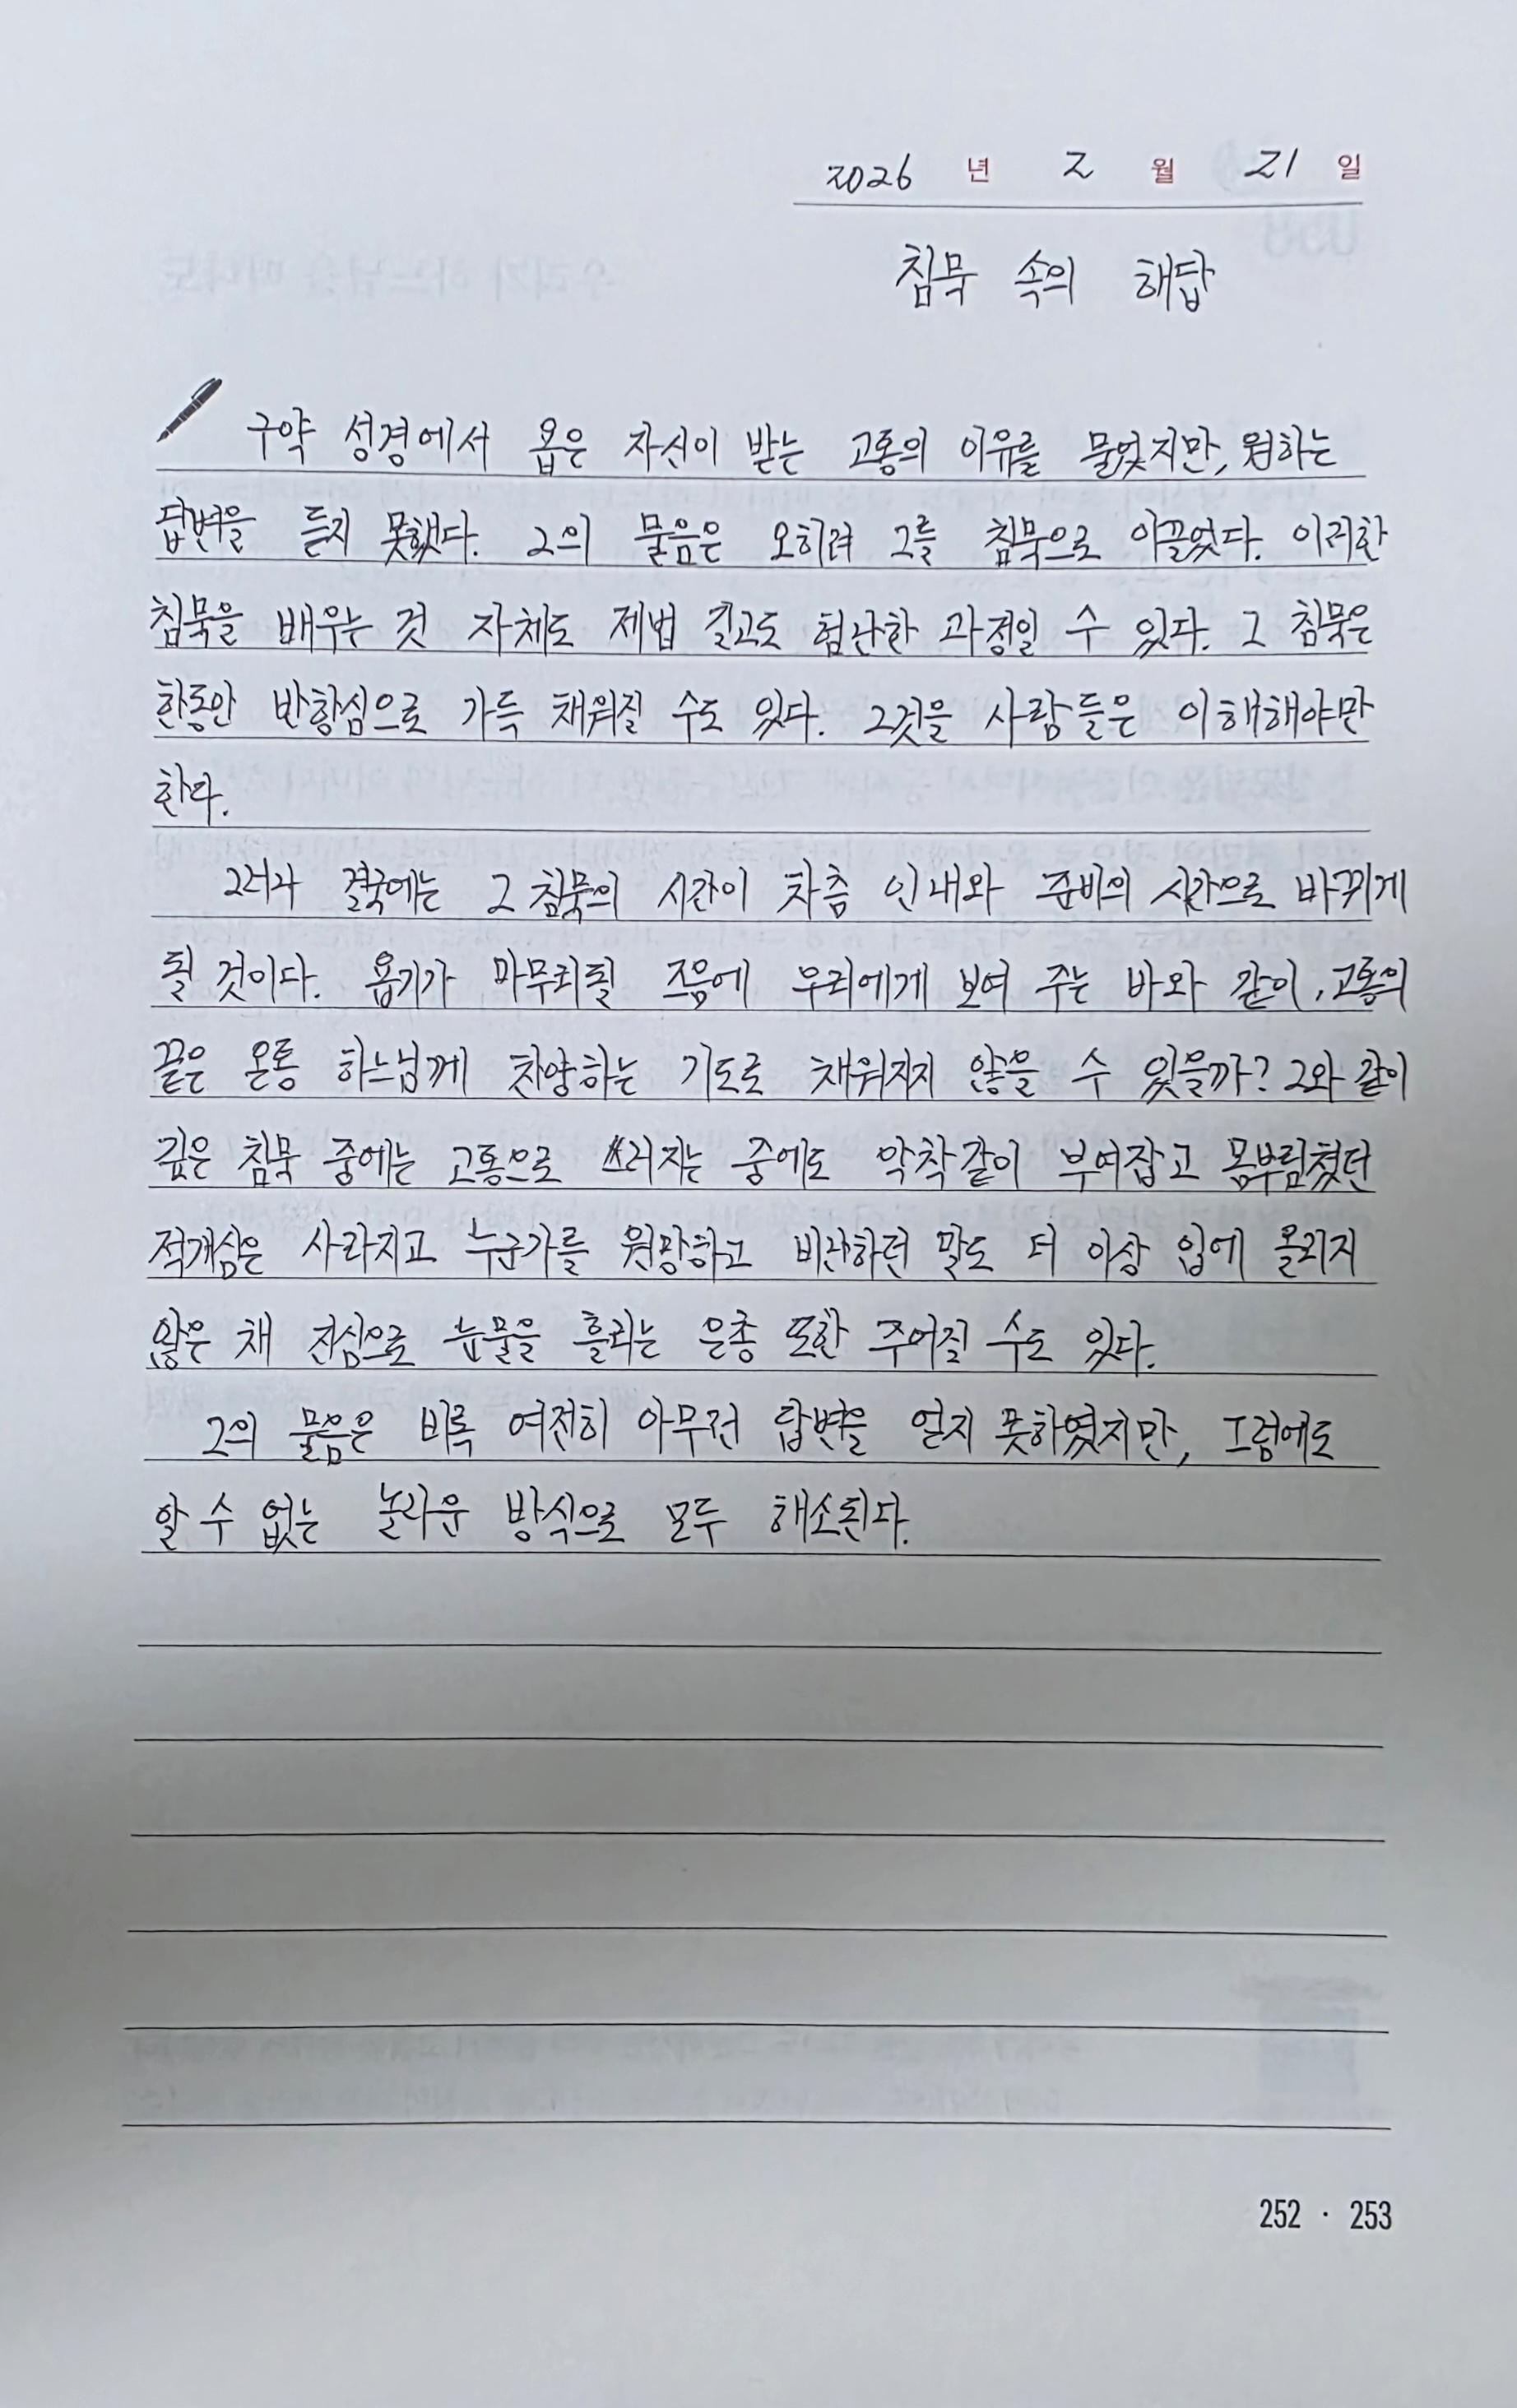 2026 년 2 월 21 일
침묵 속의 해답
구약 성경에서 욥은 자신이 받는 고통의 이유를 물었지만, 원하는
답변을 듣지 못했다. 그의 물음은 오히려 그를 침묵으로 이끌었다. 이러한
침묵을 배우는 것 자체도 제법 길고도 험난한 과정일 수 있다. 그 침묵은
한동안 반항심으로 가득 채워질 수도 있다. 그것을 사람들은 이해해야만
한다.
그러나 결국에는 그 침묵의 시간이 차츰 인내와 준비의 시간으로 바뀌게
될 것이다. 욥기가 마무리될 즈음에 우리에게 보여 주는 바와 같이, 고통의
끝은 온통 하느님께 찬양하는 기도로 채워지지 않을 수 있을까? 그와 같이
깊은 침묵 중에는 고통으로 쓰러지는 중에도 악착같이 부여잡고 몸부림쳤던
적개심은 사라지고 누군가를 원망하고 비난하던 말도 더 이상 입에 올리지
않은 채 진심으로 눈물을 흘리는 은총 또한 주어질 수도 있다.
그의 물음은 비록 여전히 아무런 답변을 얻지 못하였지만, 그럼에도
알 수 없는 놀라운 방식으로 모두 해소된다.
252 · 253